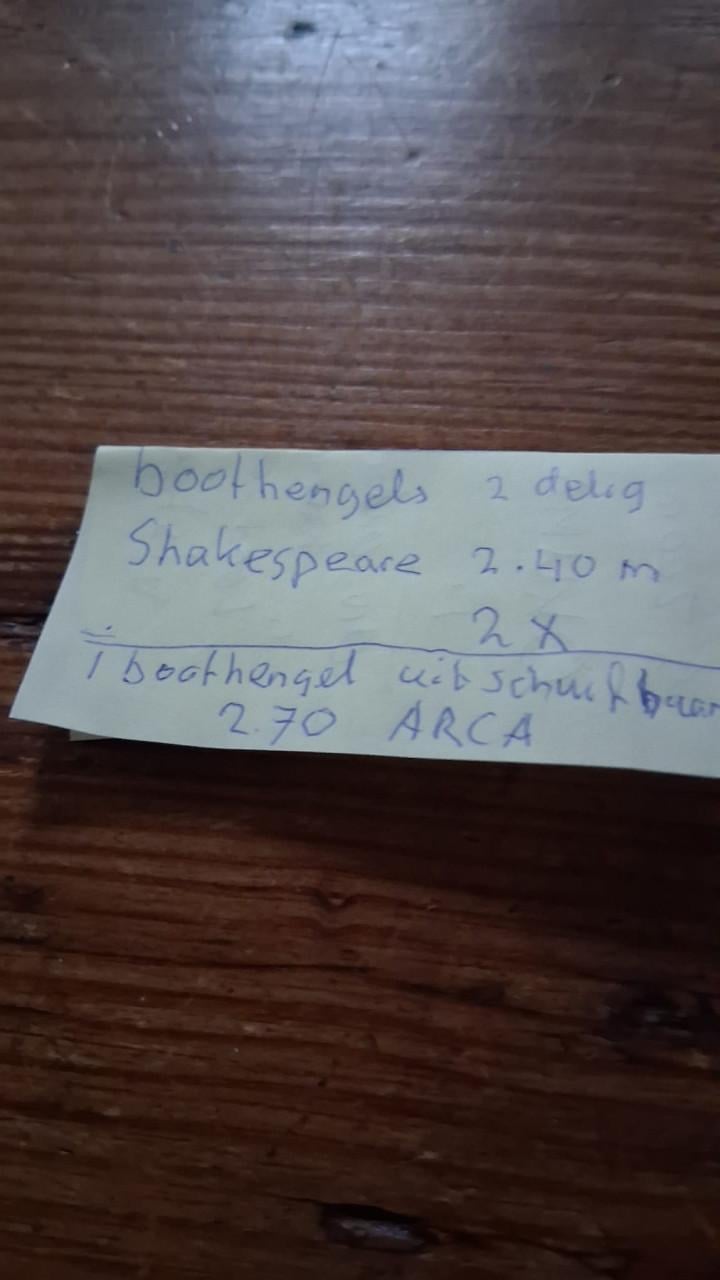 boothengels 2 delig
Shakespeare 2.40 m
2 x
1 boothengel uitschuifbaar
2.70 ARCA